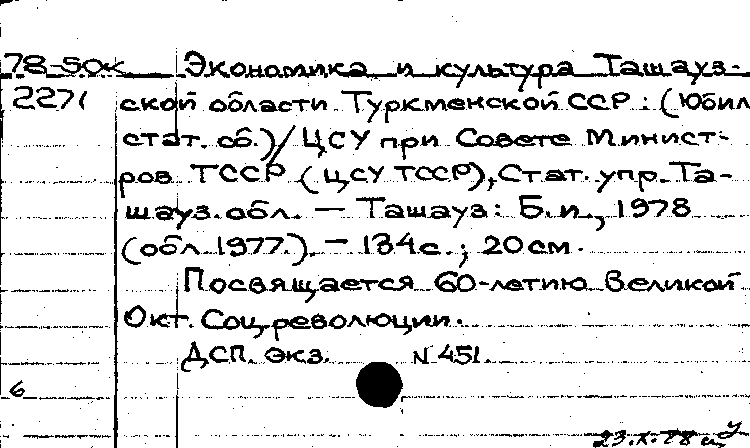 78-50к Экономика и культура Ташауз-
2271 ской области Туркменской ССР: (Юбил
стат. сб.) / ЦСУ при Совете Минист-
ров ТССР (ЦСУ ТССР), Стат. упр. Та-
шауз. обл. — Ташауз: Б.и., 1978
(обл. 1977.). — 134с.; 20см.
Посвящается 60-летию Великой
Окт. Соц. революции.
ДСП. экз. N 451.
6
23.X.78